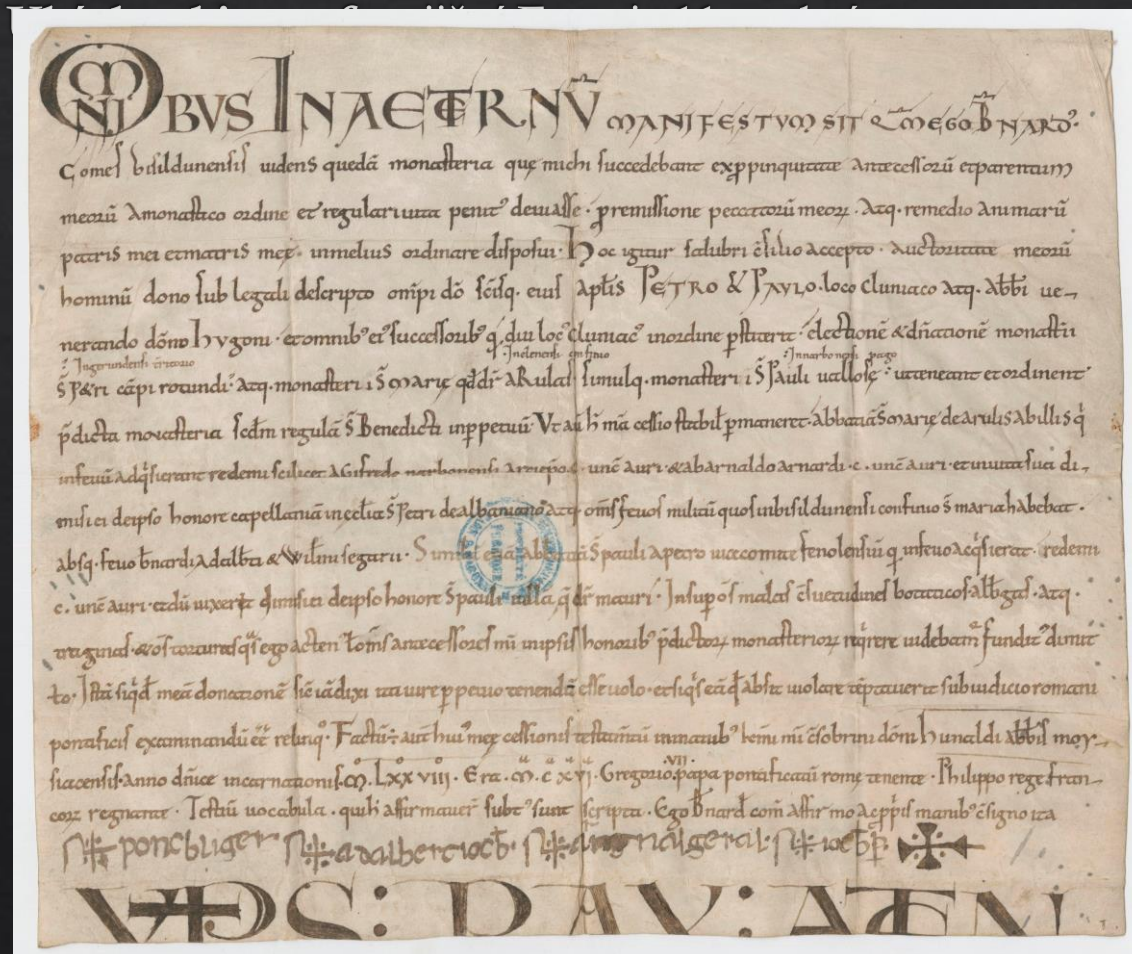 OMNIBVS IN AETERNV̄ MANIFESTVM SIT QM̄ EGO B̄NARD᾽
Comes bisildunensis uidens quedā monasteria quę michi succedebant exp̱pinquitate antecessorū et parentum
meorū A monastico ordine et regulari uita penit᾽ deuiasse · p̱ remissione peccatorū meorꝝ · Atq· remedio animarū
patris mei et matris meę · in melius ordinare disposui · Hoc igitur salubri c̄silio accepto · Auctoritate meorū
hominū dono sub legali descripto om̄pi dō sc̄isq· eius apl̄is PETRO & PAVLO · loco cluniaco atq· abb̄i ue-
nerando dōno hugoni · et omnib᾽ ei᾽ successorib᾽ q̇ diu loc᾽ cluniac᾽ in ordine p̱stiterit · electionē & dn̄ationē monastīi
In gerundensi In elenensi confinio In narbonensi pago
S̄ Petri cāpi rotundi · atq· monasterii S̄ Marię qd̄ dr̄ aRulas simulq· monasterii S̄ Pauli uallosę · ut teneant et ordinent
p̄dicta monasteria scd̄m regulā S̄ Benedicti in p̱petuū · Vt aū h̄ mā cessio stabil᾽ p̱maneret · abbatiā S̄ Marię de arulis ab illis q̇
in feuū adq̇sierant redemi scilicet a Gifredo narbonensi archiep̄o · c · unc̄ auri · & ab arnaldo arnardi · c · unc̄ auri · et in uita sua di-
misi ei de ipso honore capellaniā in ecl̄ia S̄ Petri de albaniano atq· om̄s feuos militū quos in bisildunensi confinio S̄ maria habebat ·
absq· feuo b̄nardi Adalb̄ti & Wilmi seguri · Similit̄ etiā abbatiā S̄ pauli a petro uicecomite fenolensiū q̇ in feuo acq̇sierat · redemi
c · unc̄ auri · et dū uixerit dimisi ei de ipso honore S̄ pauli uilla q̄ dr̄ mauri · Insup̱ ōs malas c̄suetudines botaticos · alb̄gas · atq·
traginas · & ōs torturas q̇s ego actenᵘ uł om̄s antecessores mī in ipsis honorib᾽ p̄dictorꝝ monasteriorꝝ req̇rere uidebam̄ fundit᾽ dimit
to · Istā siq̇d̄ meā donationē sic̄ iā dixi ita iure p̱petuo tenendā esse uolo · et siq̇s eā qd̄ absit uiolare tēptauerit sub iudicio romani
pontificis examinandū eū relinq᾽ · Factū ÷ aut̄ hui᾽ meę cessionis testam̄tū in manib᾽ dōmi mī c̄sobrini dōni hunaldi abb̄is moy-
siacensis · anno dn̄ice incarnationis · M̄ · LXX VIII · Era · M̄ · C XVI · Gregorio · VII · papa pontificatū rome tenente · Philippo rege fran-
corꝝ regnante · Testiū uocabula · qui h̄ affirmauer̄ subt᾽ sunt scripta · Ego B̄nard᾽ com̄ affirmo ac p̱priis manib᾽ c̄signo ita